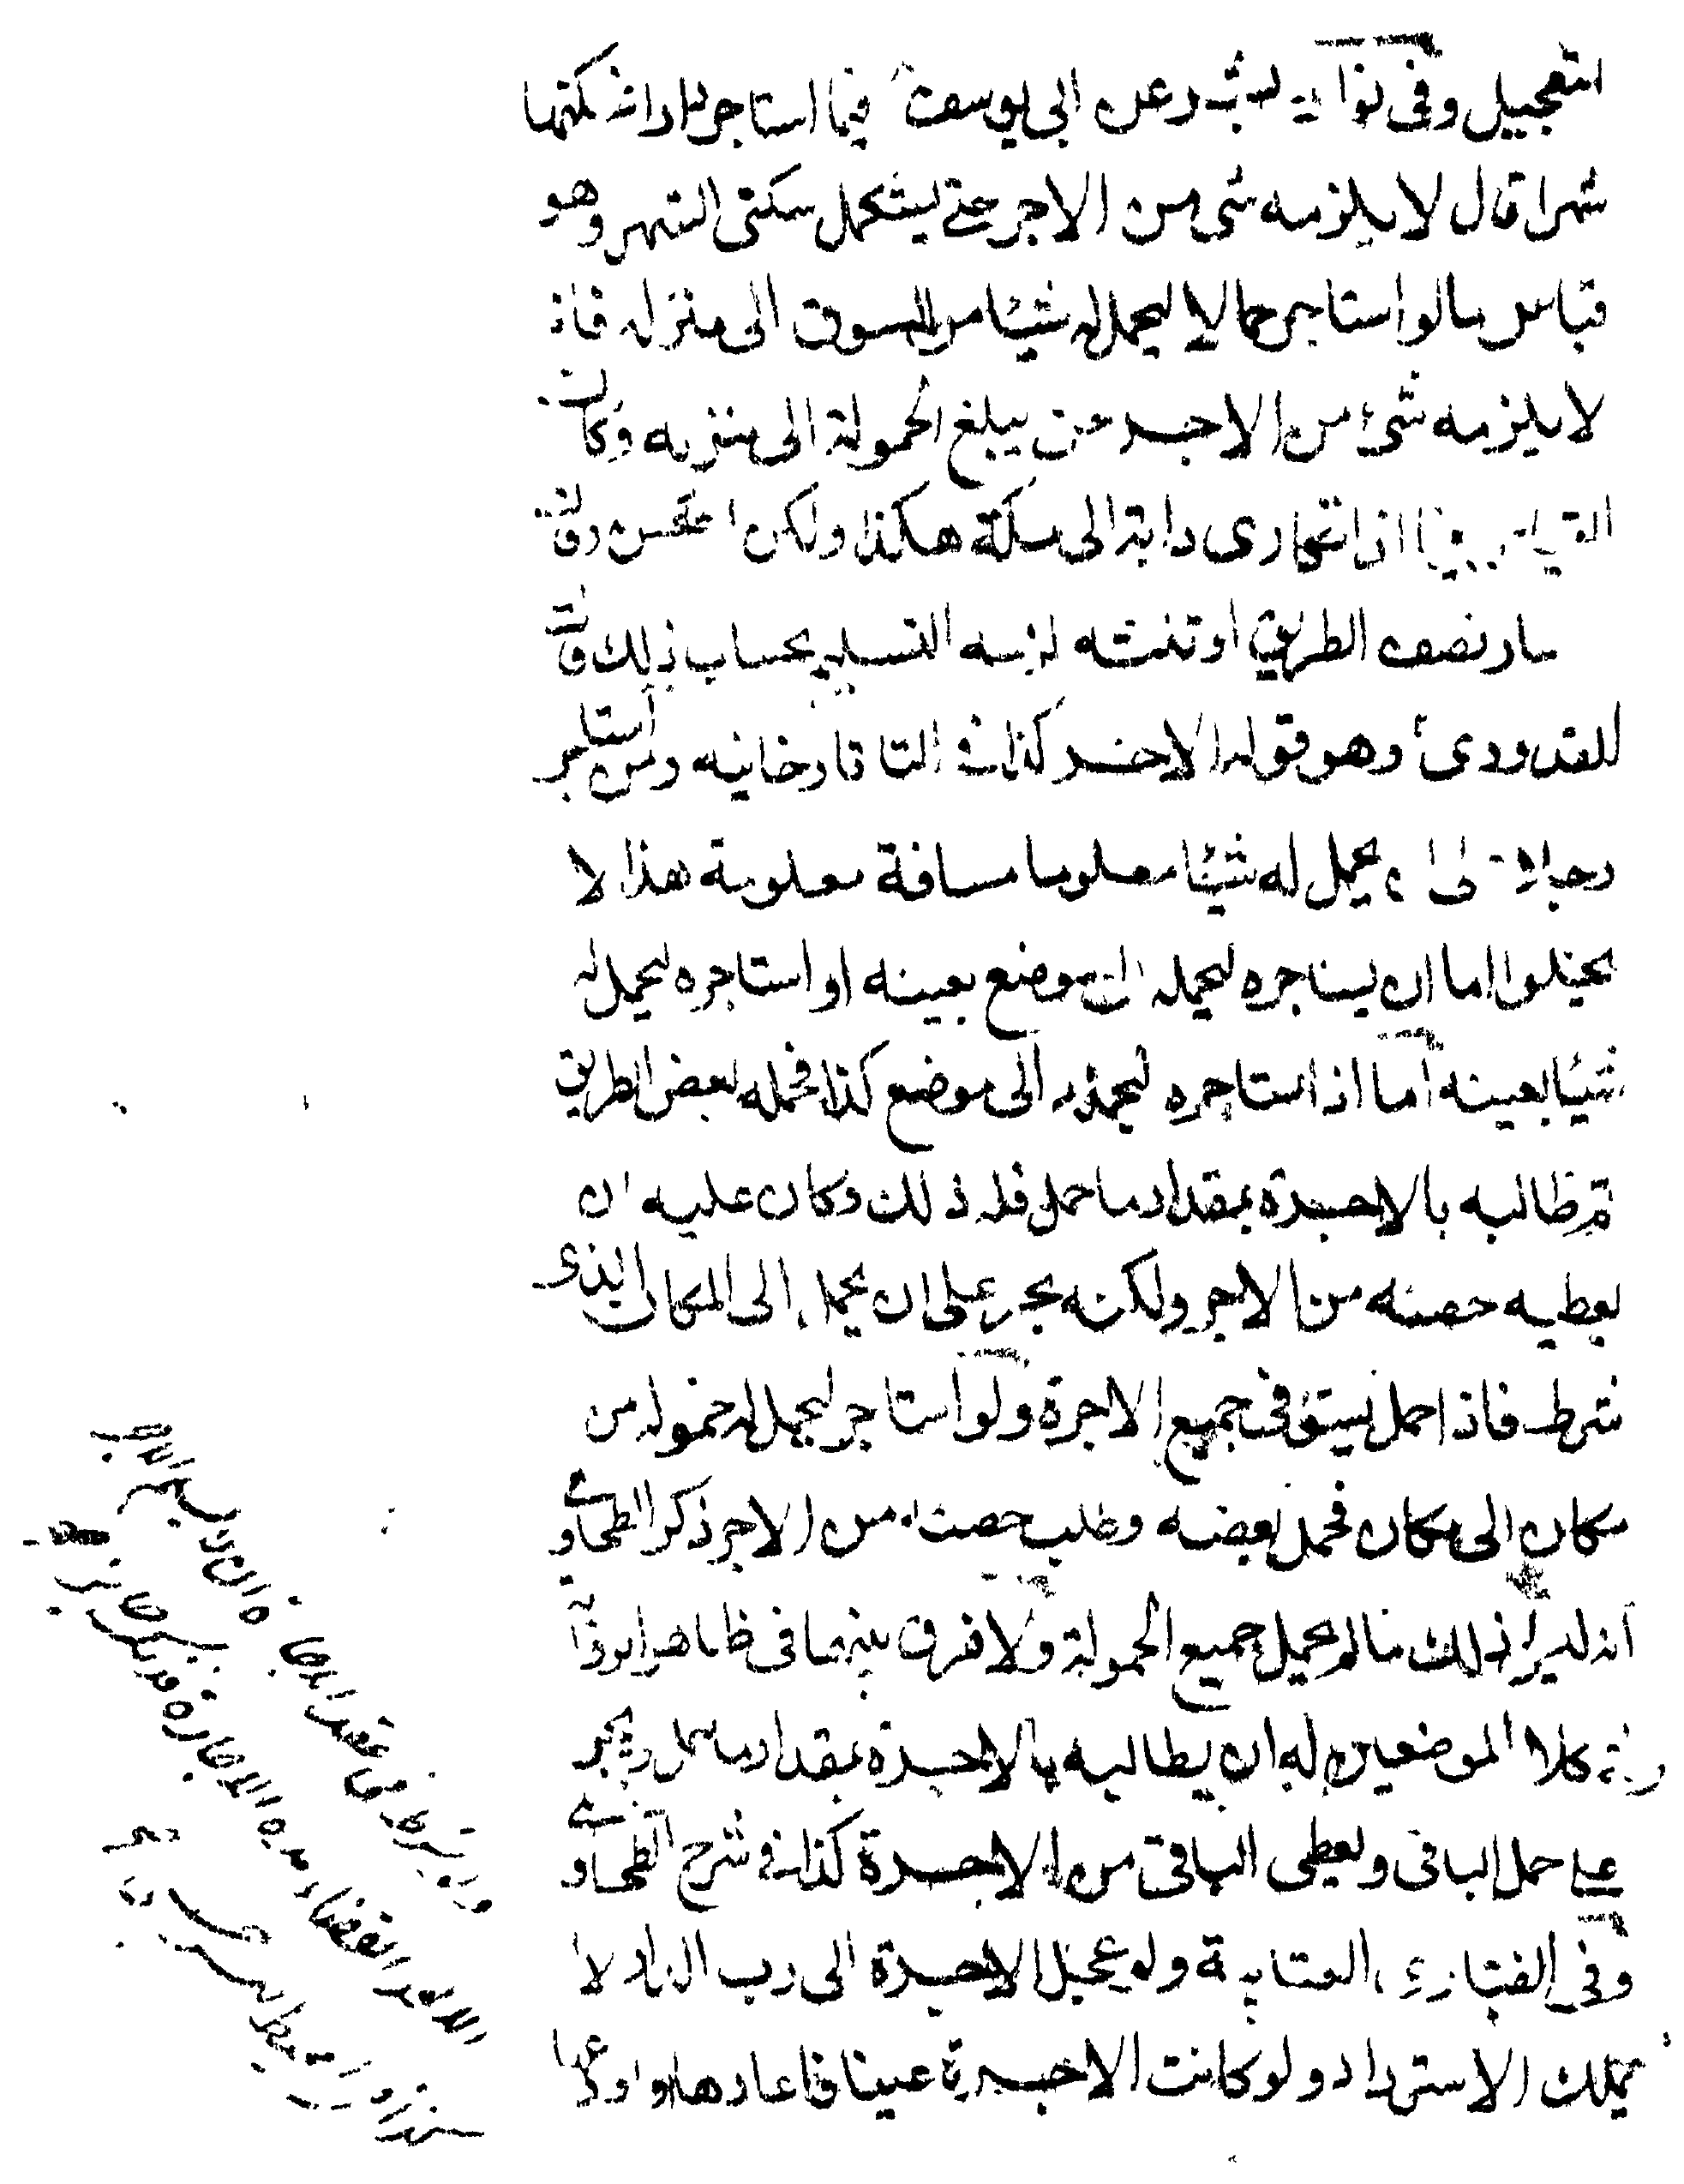 التعجيل وفي نوادر بشر عن ابي يوسف فيما استاجر دارا ليسكنها
شهرا قال لا يلزمه شئ من الاجر حتى يستكمل سكنى الشهر وهو
قياس ما لو استاجر حمالا ليحمل له شيئا من السوق الى منزله فانه
لا يلزمه شئ من الاجر حتى يبلغ الحمولة الى منزله وكان
القياس فيما اذا تكارى دابة الى مكة هكذا ولكن استحسن وقال
سار نصف الطريق او ثلثه لزمه التسليم بحساب ذلك قال
القدوري وهو قوله الاخير كذا في التاتارخانيه ومن استاجر
رجلا على ان يحمل له شيئا معلوما مسافة معلومة هذا لا
يخلوا اما ان يستاجره ليحمله الى موضع بعينه او استاجره ليحمل له
شيئا بعينه اما اذا استاجره ليحمله الى موضع كذا فحمله بعض الطريق
ثم طالبه بالاجرة بمقدار ما حمل فله ذلك وكان عليه ان
يعطيه حصته من الاجر ولكنه يجبر على ان يحمل الى المكان الذي
شرط فاذا حمل يستوفى جميع الاجرة ولو استاجر ليحمل له حمولة من
مكان الى مكان فحمل بعضه وطلب حصته من الاجر ذكر الطحاوي
انه ليس له ذلك ما لم يحمل جميع الحمولة ولا فرق بينهما في ظاهر الرواية
وفي كلا الموضعين له ان يطالبه بالاجرة بمقدار ما حمل ويجبر
على حمل الباقى ويعطى الباقى من الاجرة كذا في شرح الطحاوي
وفي الفتاوى العتابية ولو عجل الاجرة الى رب الدار لا
يملك الاسترداد ولو كانت الاجرة عينا فاعارها او اودعها